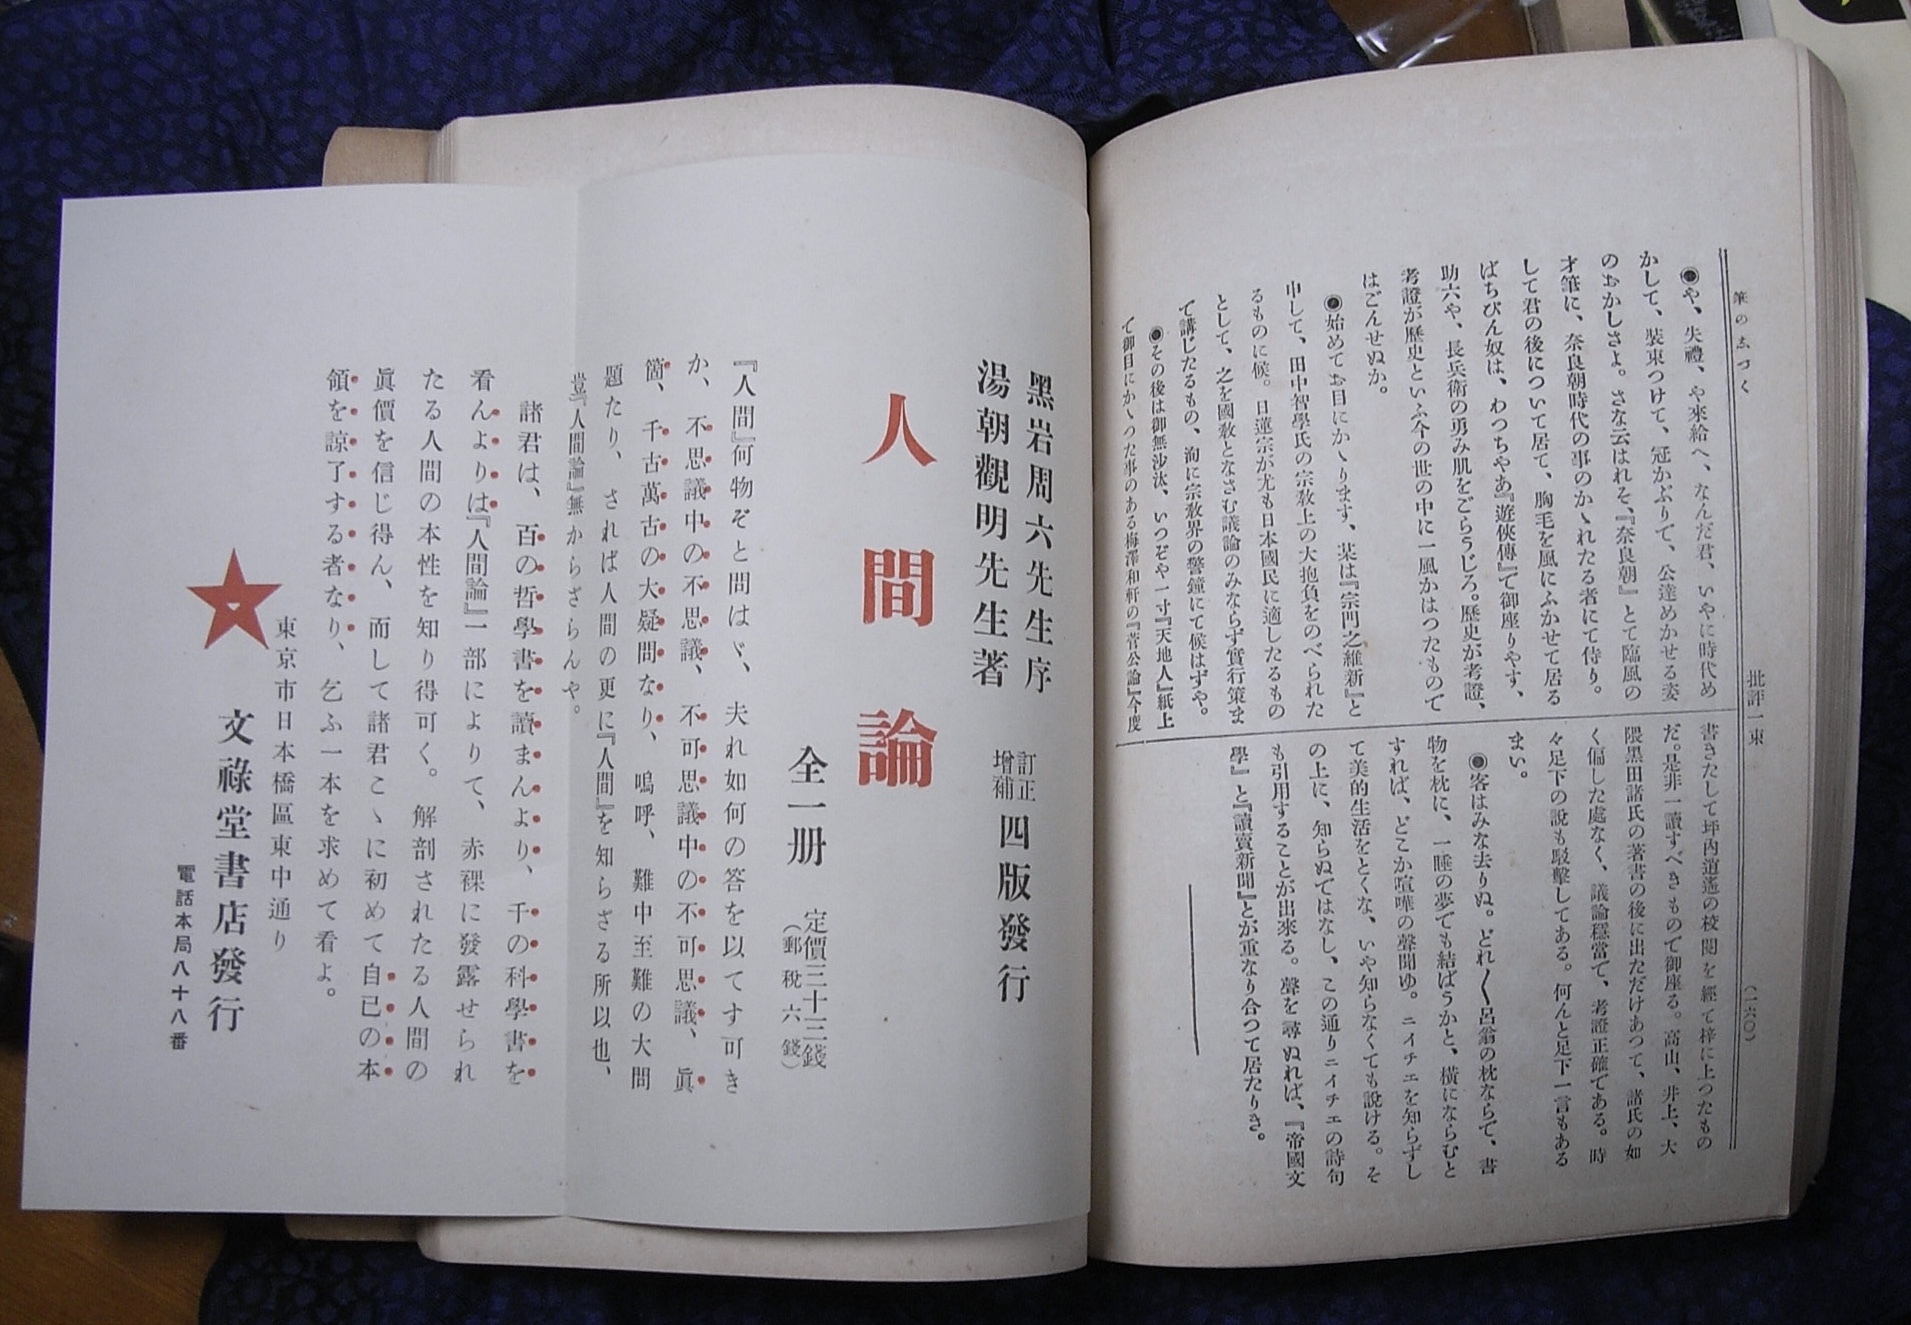 筆のしづく
批評一束
(一六〇)
◉や、失禮、や來給へ、なんだ君、いやに時代め
かして、裝束つけて、冠かぶりて、公達めかせる姿
のおかしさよ。さな云はれそ、『奈良朝』とて臨風の
才筆に、奈良朝時代の事のかゝれたる者にて侍り。
して君の後について居て、胸毛を風にふかせて居る
ばちびん奴は、わつちやあ『遊俠傳』で御座りやす、
助六や、長兵衛の勇み肌をごらうじろ。歷史が考證、
考證が歷史といふ今の世の中に一風かはつたもので
はごんせぬか。
◉始めてお目にかゝります、某は『宗門之維新』と
申して、田中智學氏の宗敎上の大抱負をのべられた
るものに候。日蓮宗が尤も日本國民に適したるもの
として、之を國敎となさむ議論のみならず實行策ま
で講じたるもの、洵に宗敎界の警鐘にて候はずや。
◉その後は御無沙汰、いつぞや一寸『天地人』紙上
で御目にかゝつた事のある梅澤和軒の『菅公論』今度
書きたして坪內逍遙の校閱を經て梓に上つたもの
だ。是非一讀すべきもので御座る。高山、井上、大
隈黑田諸氏の著書の後に出ただけあつて、諸氏の如
く偏した處なく、議論穩當で、考證正確である。時
々足下の說も駁擊してある。何んと足下一言もある
まい。
◉客はみな去りぬ。どれ〱呂翁の枕ならで、書
物を枕に、一睡の夢でも結ばうかと、橫にならむと
すれば、どこか喧嘩の聲聞ゆ。ニイチエを知らずし
て美的生活をとくな、いや知らなくても說ける。そ
の上に、知らぬてはなし、この通りニイチエの詩句
も引用することが出來る。聲を尋ぬれば、『帝國文
學』と『讀賣新聞』とが重なり合つて居たりき。
黑岩周六先生序
湯朝觀明先生著
訂正
增補
四版發行
人間論
全一册
定價三十三錢
(郵稅六錢)
『人間』何物ぞと問はゞ、夫れ如何の答を以てす可き
か、不思議中の不思議、不可思議中の不可思議、眞
箇、千古萬古の大疑問なり、嗚呼、難中至難の大問
題たり、されば人間の更に『人間』を知らざる所以也、
豈『人間論』無からざらんや。
諸君は、百の哲學書を讀まんより、千の科學書を
看んよりは『人間論』一部によりて、赤裸に發露せられ
たる人間の本性を知り得可く。解剖されたる人間の
眞價を信じ得ん、而して諸君こゝに初めて自己の本
領を諒了する者なり、乞ふ一本を求めて看よ。
東京市日本橋區東中通り
文祿堂書店發行
電話本局八十八番